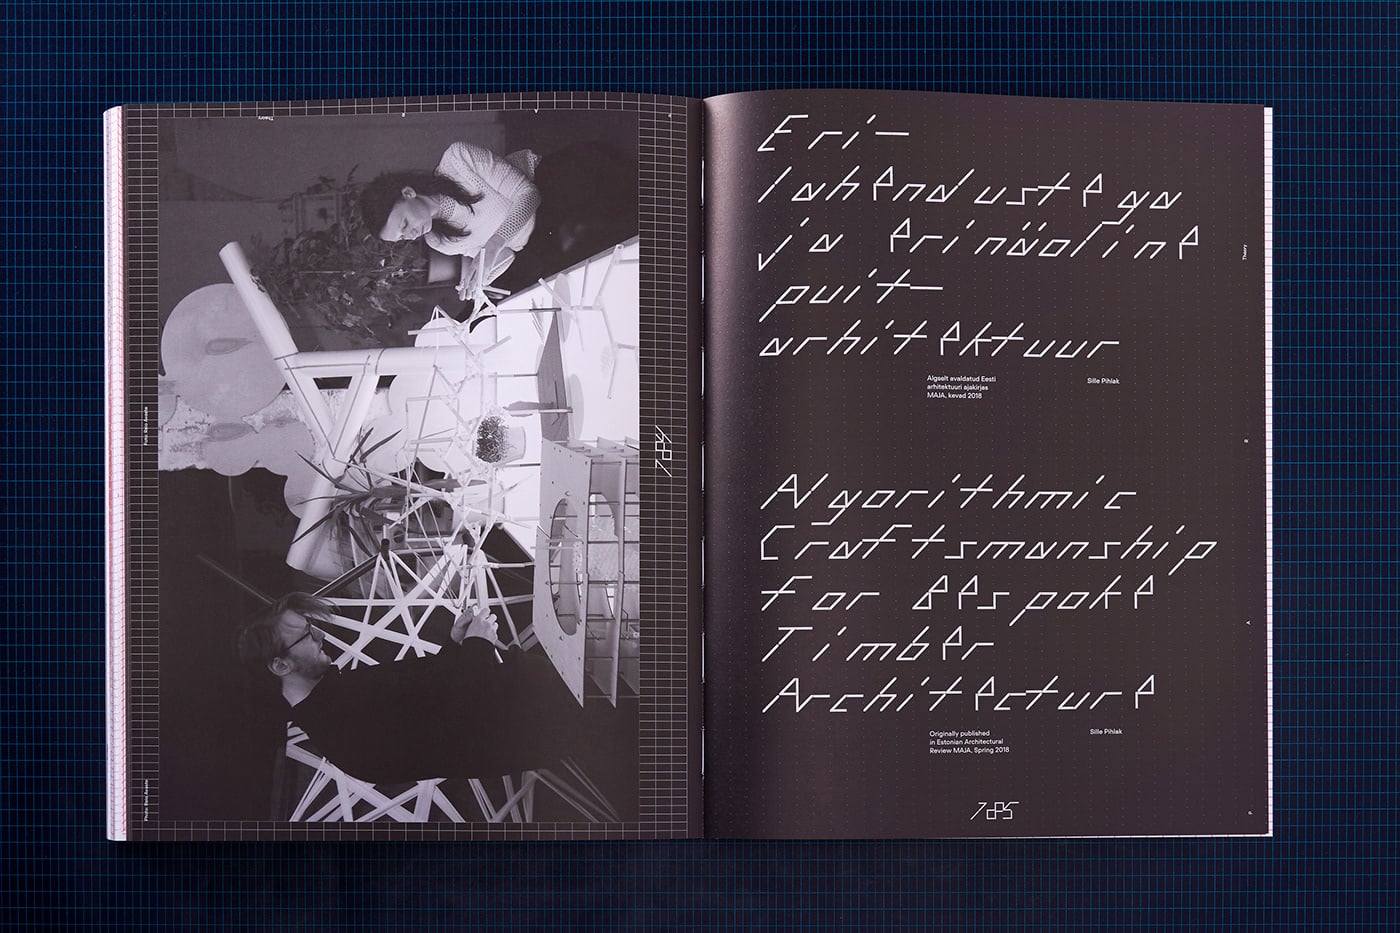 Theory
R
A
P
Foto:
Photo:
Eri-
lahendustega
ja erinäoline
puit-
arhitektuur
Algselt avaldatud Eesti
arhitektuuri ajakirjas
MAJA, kevad 2018
Sille Pihlak
Algorithmic
Craftsmanship
for Bespoke
Timber
Architecture
Originally published
in Estonian Architectural
Review MAJA, Spring 2018
Sille Pihlak
Theory
R
A
P